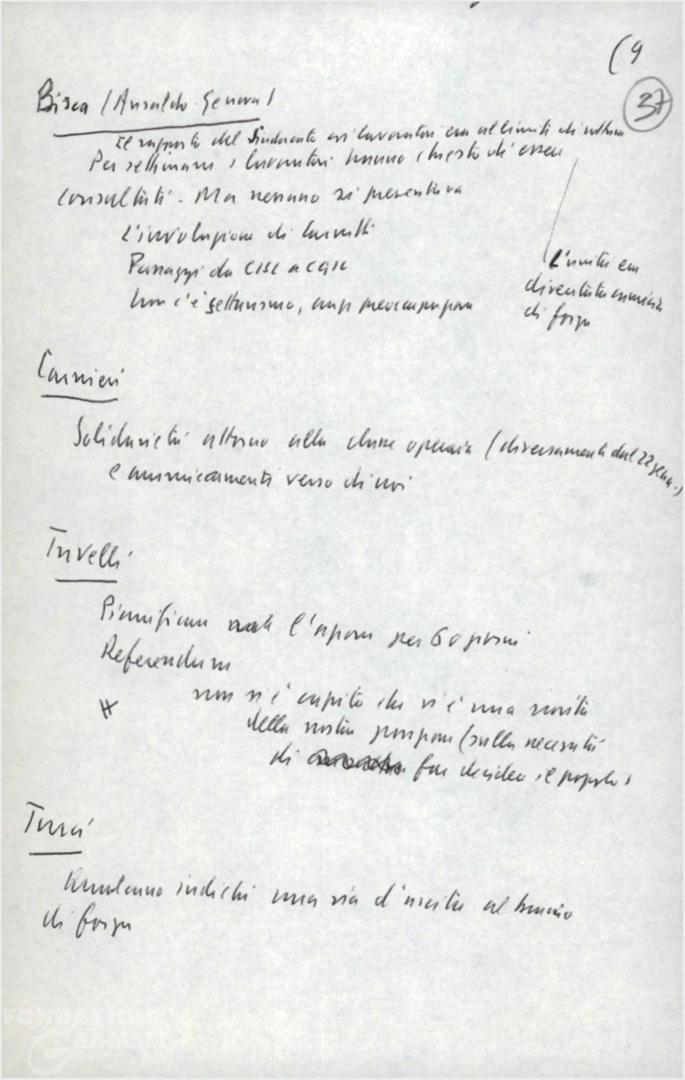 (9
37
Bisca (Ansaldo-Genova)
Il rapporto del Sindacato coi lavoratori era ai limiti di rottura
Per settimane i lavoratori hanno chiesto di essere
consultati. Ma nessuno si presentava
L'involuzione di
Passaggi da CISL a CGIL
Non c'è settarismo, ampia preoccupazione
L'unità era
diventata camicia
di forza
Carnieri
Solidarietà attorno alla classe operaia (diversamente dal 22 genn.)
e verso di noi
Trivelli
l'azione per 60 giorni
Referendum
non si è capito che vi è una novità
della nostra posizione (sulla necessità
di far decidere il popolo)
Turci
indichi una via d'uscita al braccio
di forza
FONDAZIONE
GRAMSCI